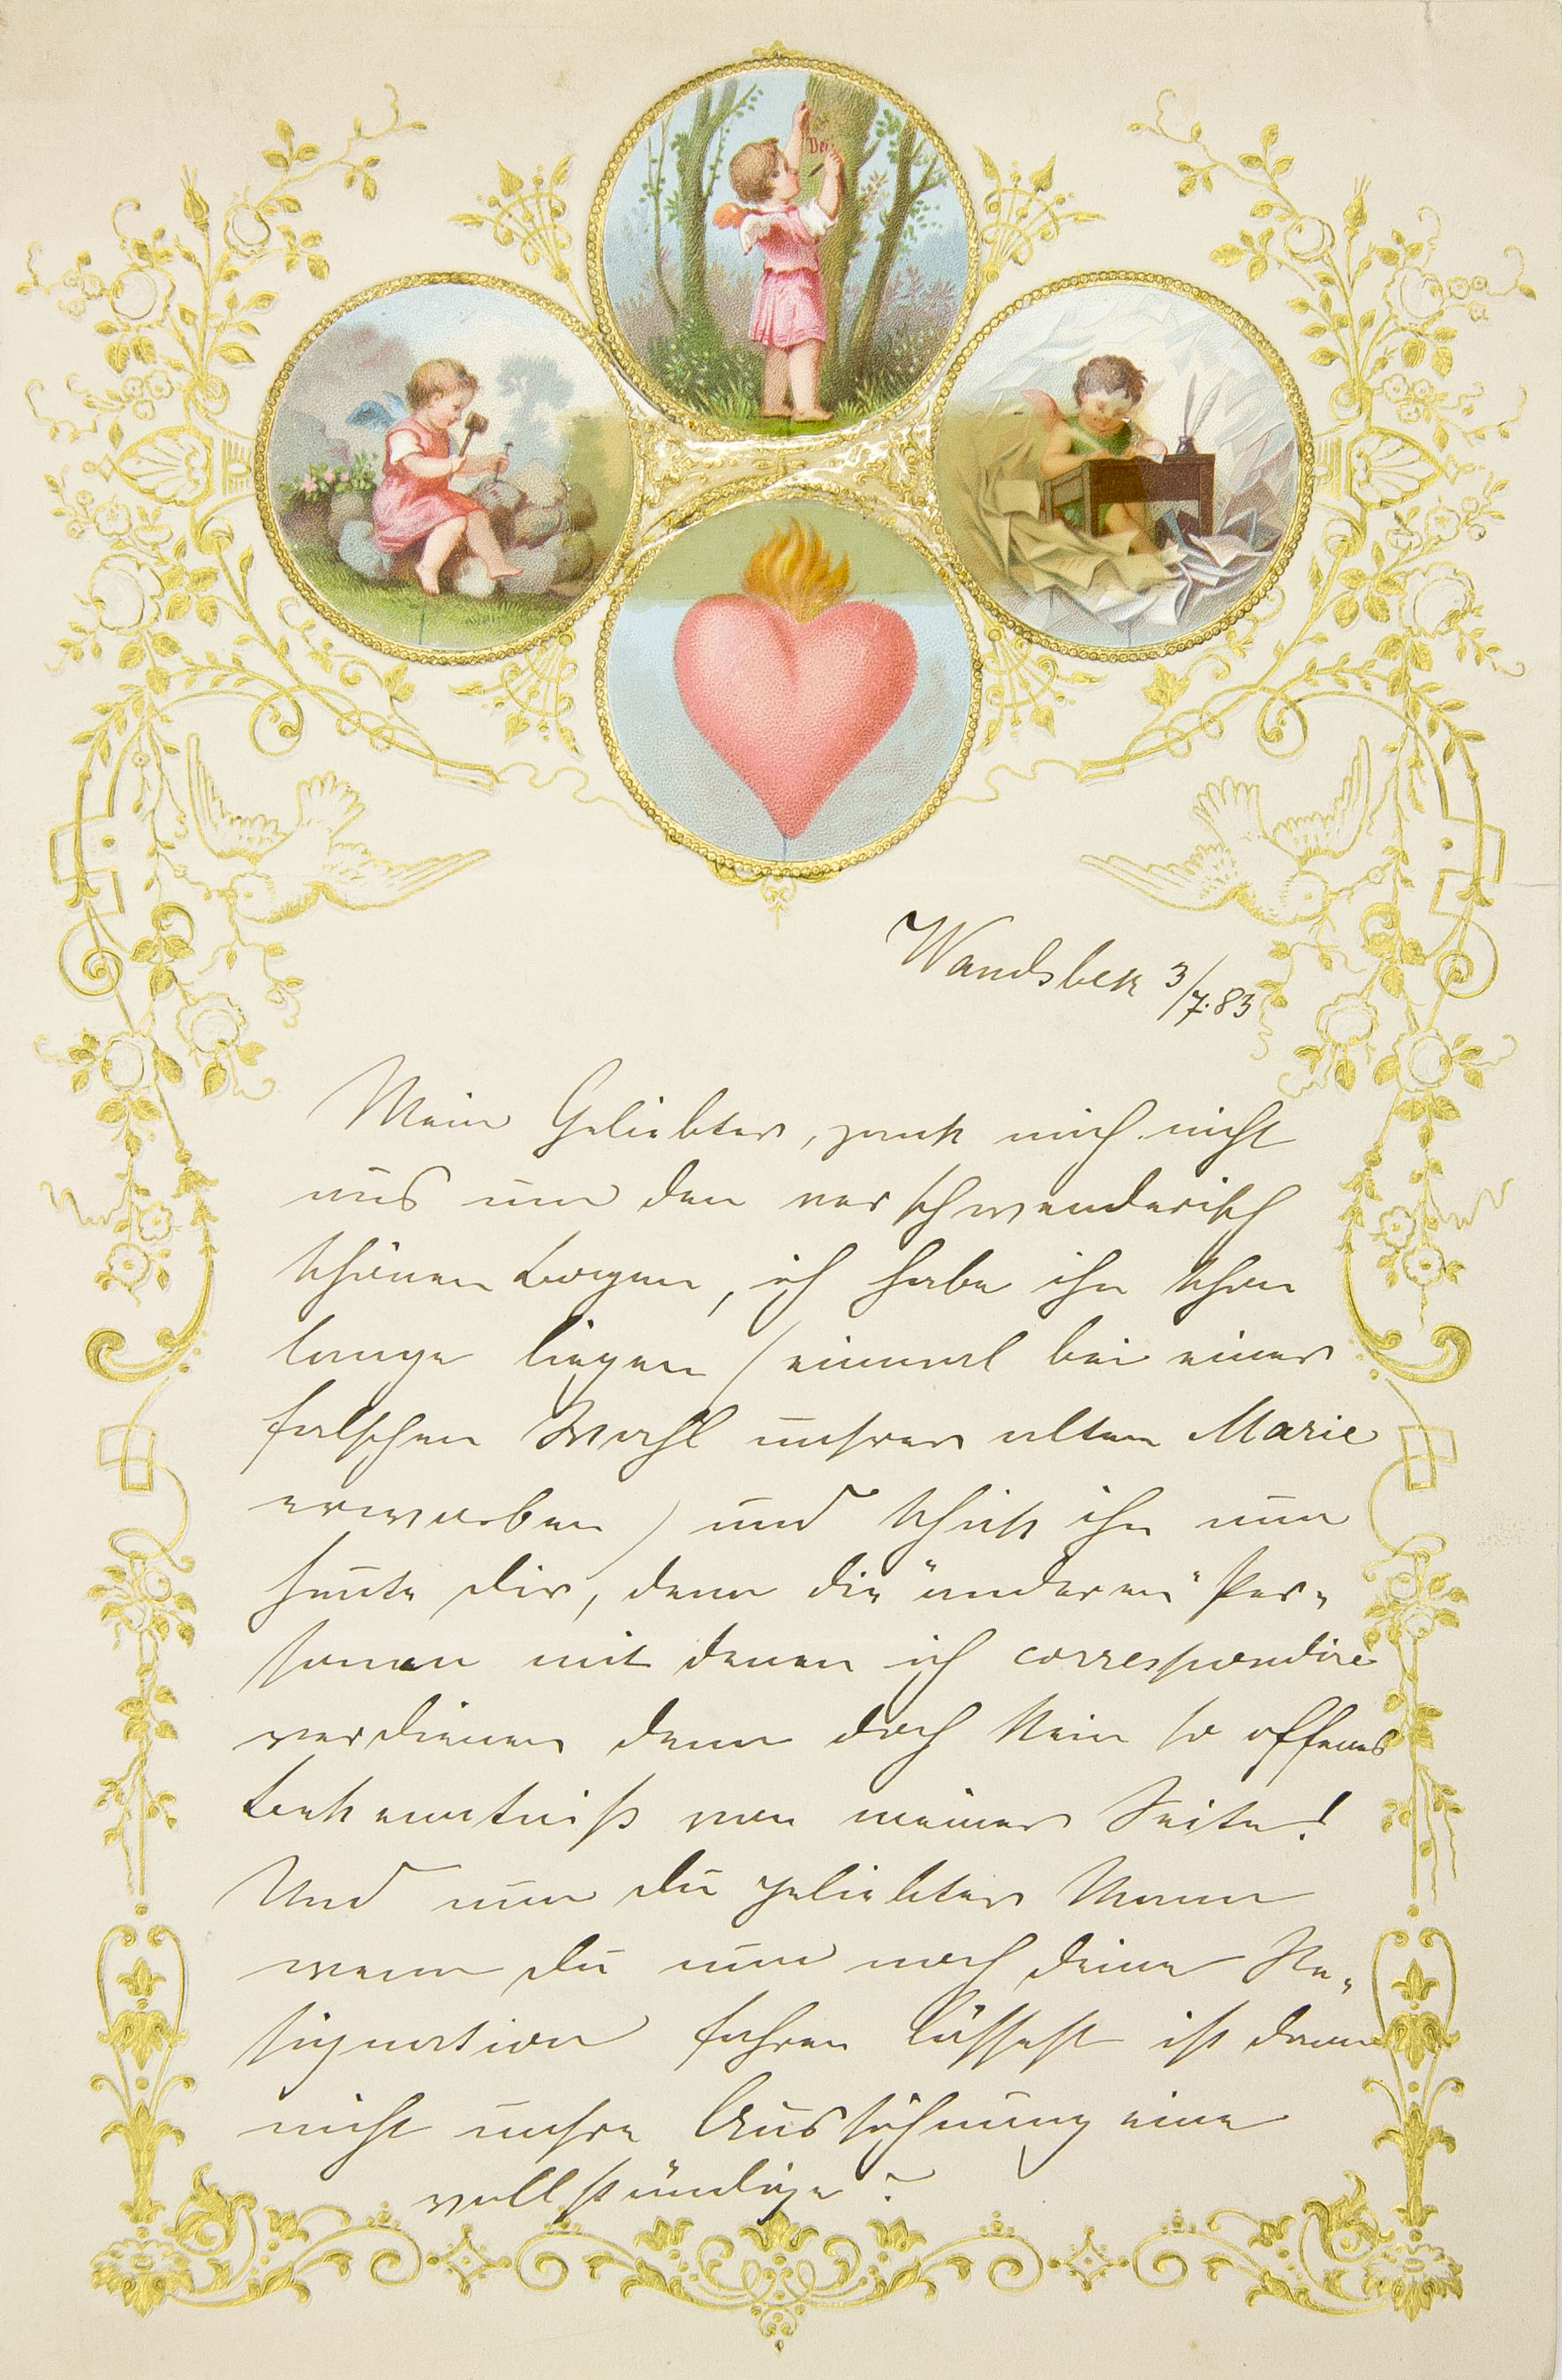 Dei
Wandsbek 3/7.83
Mein Geliebter, zank mich nicht
aus um den verschwenderisch
schönen Bogen, ich habe ihn schon
lange liegen (einmal bei einer
falschen Wahl unsrer alten Marie
erworben) und schick ihn nun
heute dir, denn die "anderen" Per-
sonen mit denen ich correspondire
verdienen denn doch kein so offenes
Bekenntniß von meiner Seite!
Und nun du geliebter Mann
wenn du nun noch deine Re-
signation fahren lässest ist dann
nicht unsre Aussöhnung eine
vollständige?